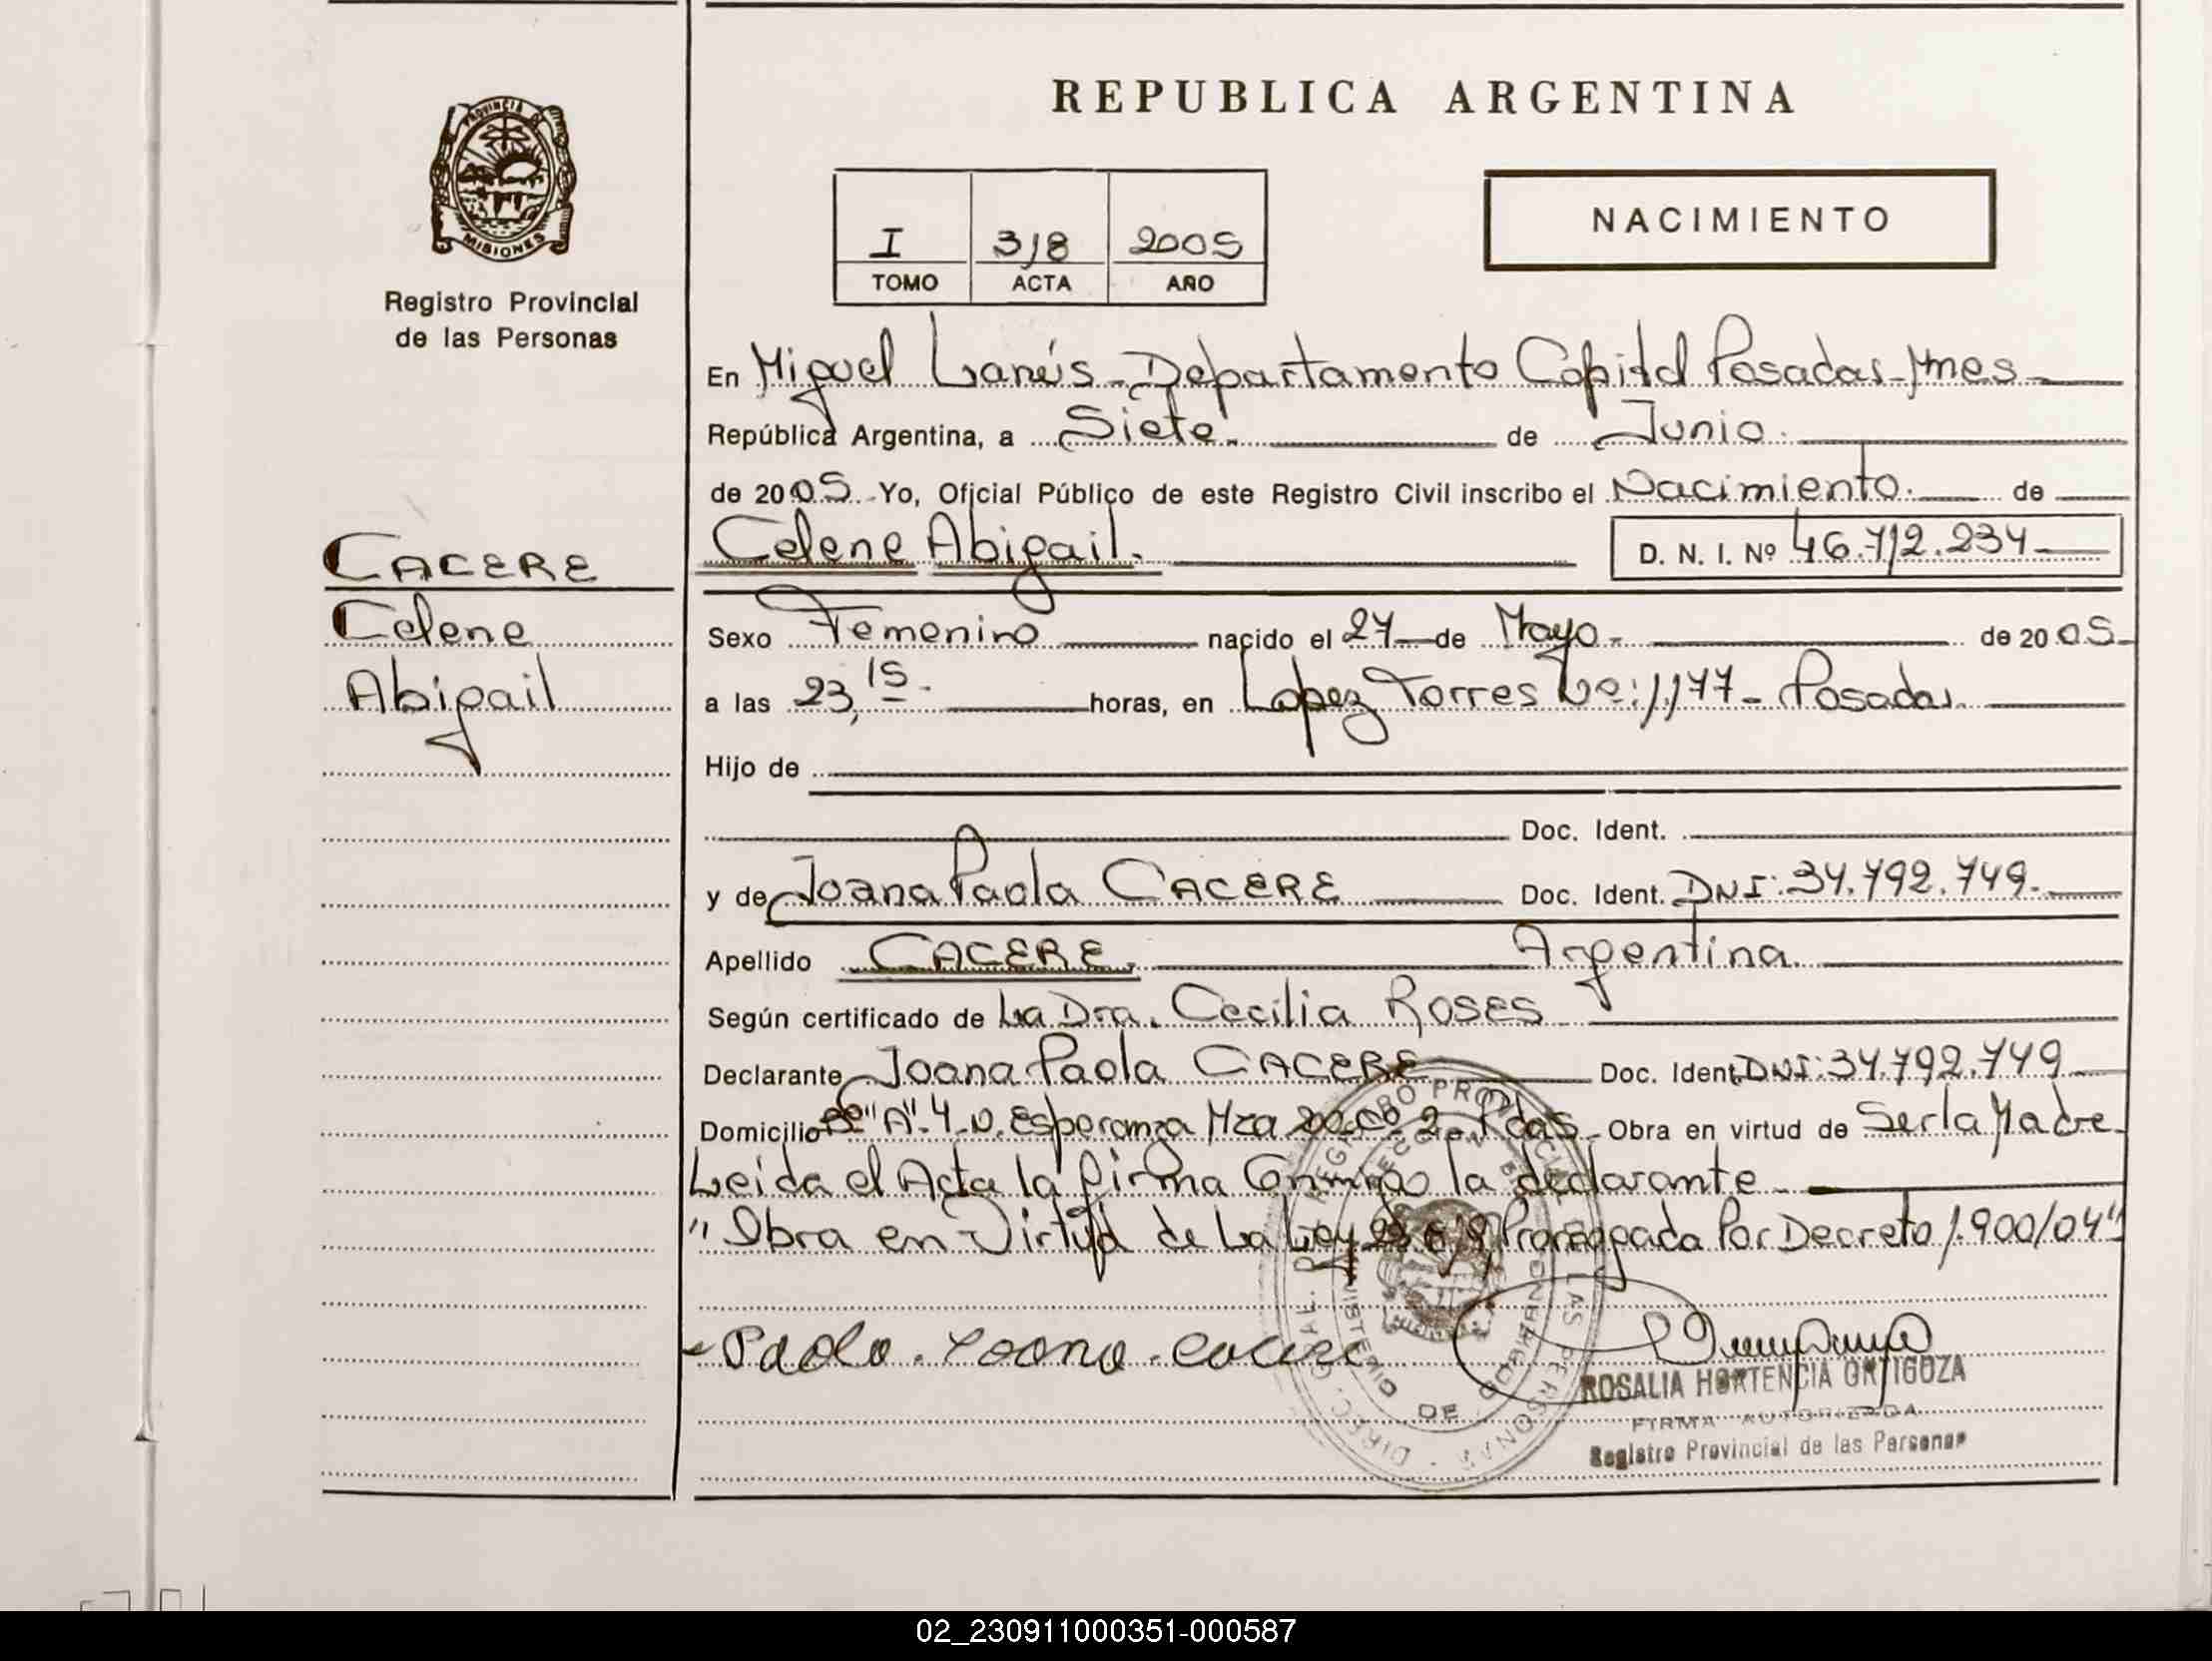 REPUBLICA ARGENTINA
PROVINCIA DE
MISIONES
Registro Provincial
de las Personas
I 318 2005
TOMO ACTA AÑO
NACIMIENTO
En Miguel Lanús - Departamento Capital Posadas - Mnes
República Argentina, a Siete de Junio
de 2005 Yo, Oficial Público de este Registro Civil inscribo el Nacimiento. de
Celene Abigail. D. N. I. Nº 46.712.234
CACERE
Celene
Abigail
Sexo Femenino nacido el 27 de Mayo de 2005
a las 23,15 horas, en Lopez Torres No: 1177 - Posadas.
Hijo de
Doc. Ident.
y de Joana Paola CACERE Doc. Ident. DNI: 34.792.749.
Apellido CACERE. Argentina.
Según certificado de La Dra. Cecilia ROSES
Declarante Joana Paola CACERE Doc. Ident. DNI: 34.792.749
Domicilio Bº "A" 4 N. Esperanza Mza 2 Pdas - Obra en virtud de Ser la Madre
Leida el Acta la firma Conmigo la declarante
"Obra en Virtud de La Ley Prorrogada Por Decreto 1.900/04"
Paola. Yoana. Cacere
DIREC. GRAL. REGISTRO PROVINCIAL DE LAS PERSONAS
MINISTERIO DE GOBIERNO
ROSALIA HORTENCIA ORTIGOZA
FIRMA AUTORIZADA
Registro Provincial de las Personas
02_230911000351-000587